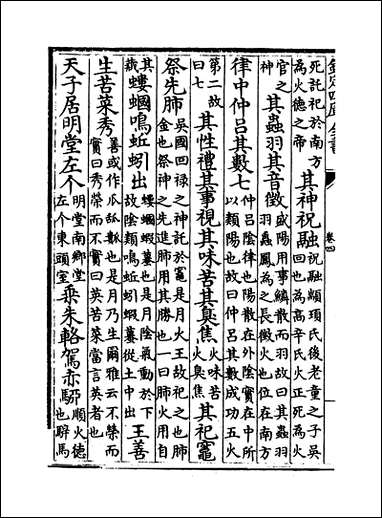 欽定四庫全書
卷四
死託祀於南方
為火德之帝
其神祝融
祝融顓頊氏後老童之子吳
回也為高辛氏火正死為火
官之
神
其蟲羽其音徵
盛陽用事鱗散而羽故曰其蟲羽
羽蟲鳳為之長徵火也位在南方
律中仲呂其數七
仲呂陰律也陽散在外陰實在中所
以類陽也故曰仲呂其數成功五火
第二故
曰七
其性禮其事視其味苦其臭焦
火味苦
火臭焦
其祀竈
祭先肺
吳國回祿之神託於竈是月火王故祀之也肺
金也祭神之先進肺用其勝也一曰肺火用自
其
蔵
螻蟈鳴蚯蚓出
螻蟈蝦蟇也是月陰氣動於下
故陰類鳴蚯蚓蝦蟇從土中出
王善
生苦菜秀
善或作瓜瓤也是月乃生爾雅云不榮而
實曰秀榮而不實曰英苦菜當言英者也
天子居明堂左个
明堂南鄉堂
左个東頭室
乘朱輅駕赤駵
順火德
也駵馬